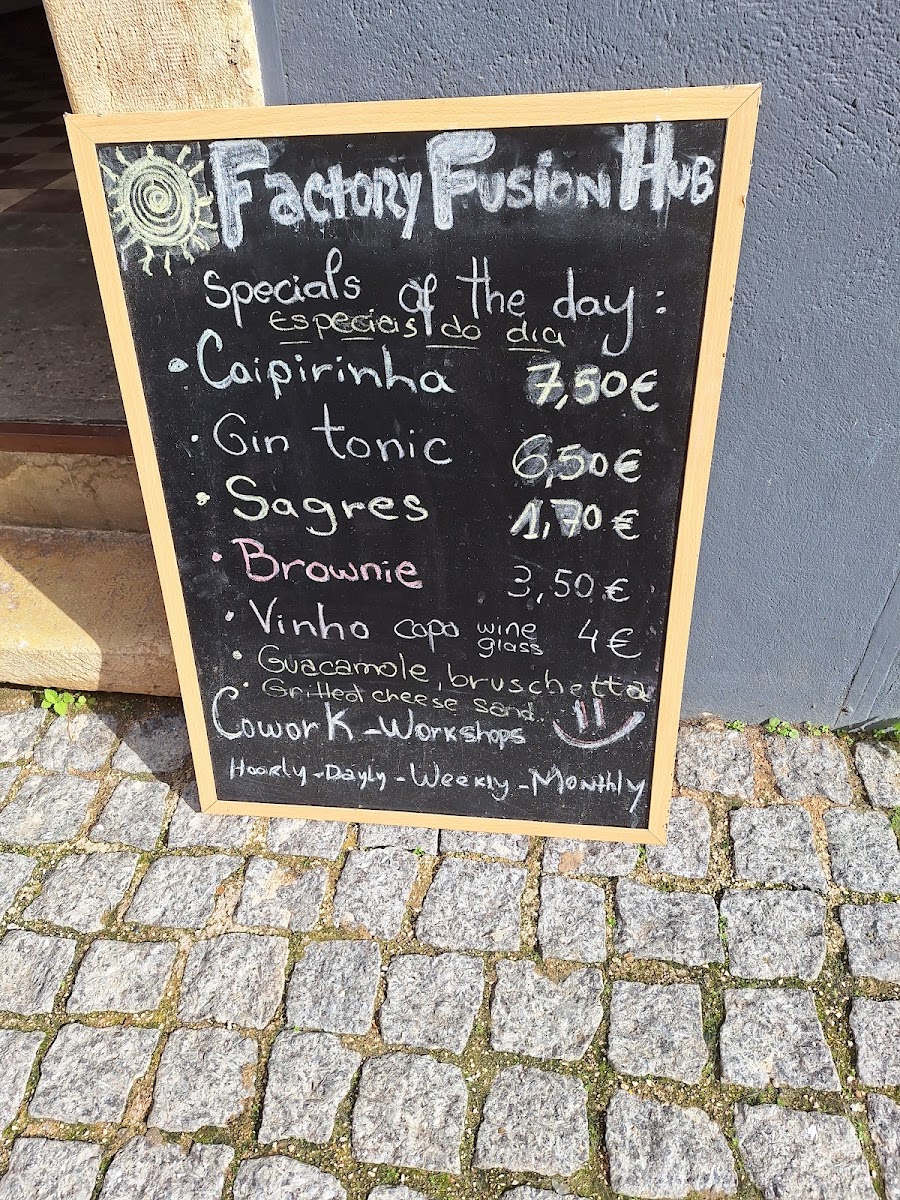 Factory Fusion Hub
Specials of the day:
Especiais do dia
• Caipirinha 7,50€
• Gin tonic 6,50€
• Sagres 1,70€
• Brownie 3,50€
• Vinho copo wine glass 4€
• Guacamole, bruschetta
• Grilled cheese sand...
Cowork - Workshops
Hoorly - Dayly - Weekly - Monthly